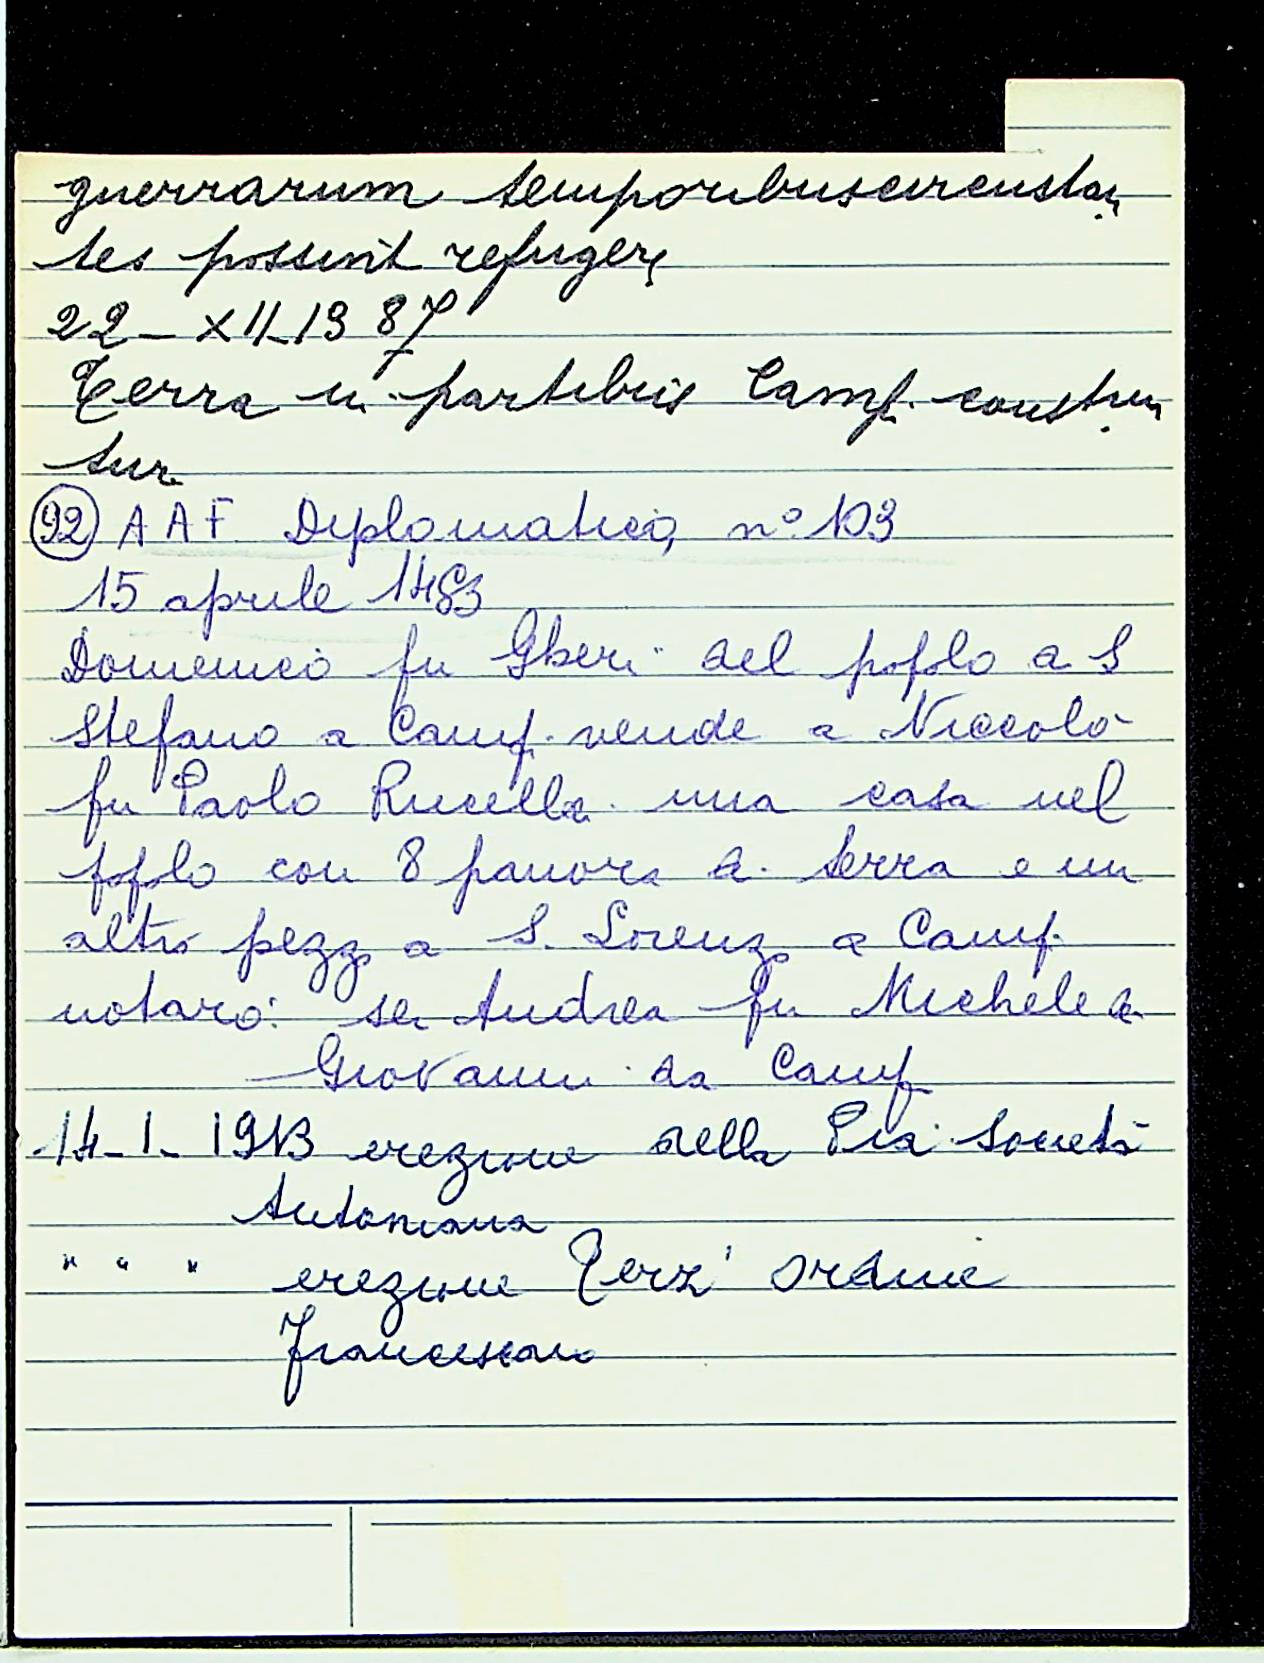 guerrarum temporibus circustan
tes possint refugere
22 - XII 1387
Terra in partibus Camp. constru
tur
92 AAF Diplomatico, n° 103
15 aprile 1483
Domenico fu Gheri del popolo d S
Stefano a Camp. vende a Niccolò
fu Paolo Rucellai una casa nel
popolo con 8 panora d. terra e un
altro pezzo a S. Lorenzo a Camp.
notaro: ser Andrea fu Michele d
Giovanni da Camp
14-1-1913 erezione della Pia Società
Antoniana
" " " erezione Terz' ordine
Francescano